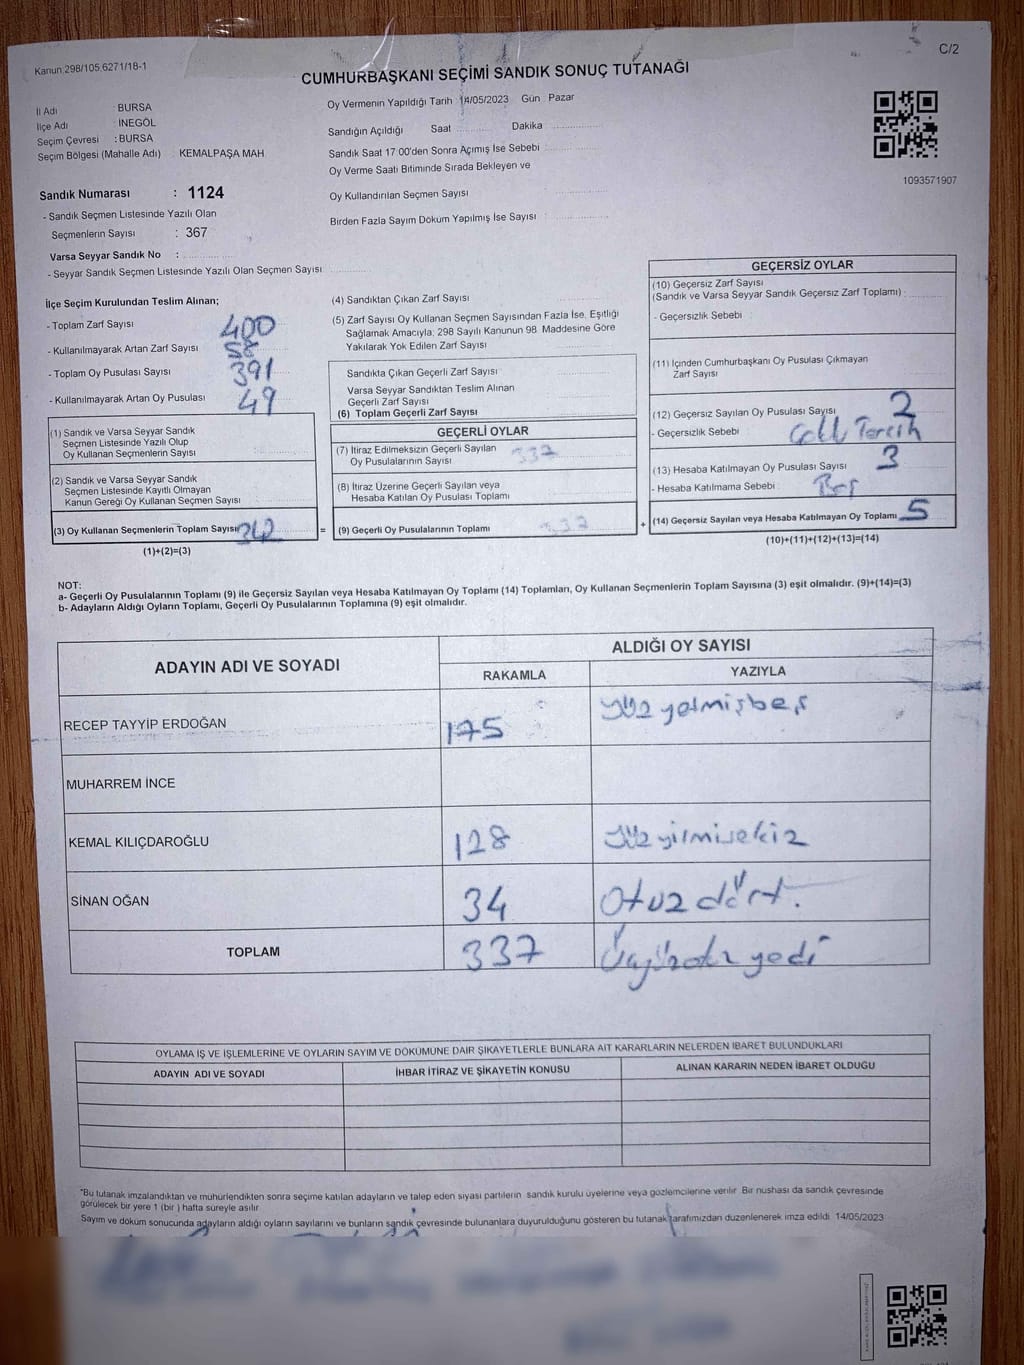 C/2
Kanun:298/105,6271/18-1
CUMHURBAŞKANI SEÇİMİ SANDIK SONUÇ TUTANAĞI
İl Adı : BURSA
İlçe Adı : İNEGÖL
Seçim Çevresi : BURSA
Seçim Bölgesi (Mahalle Adı) : KEMALPAŞA MAH
Sandık Numarası : 1124
- Sandık Seçmen Listesinde Yazılı Olan
Seçmenlerin Sayısı : 367
Varsa Seyyar Sandık No :
- Seyyar Sandık Seçmen Listesinde Yazılı Olan Seçmen Sayısı
Oy Vermenin Yapıldığı Tarih : 14/05/2023 Gün : Pazar
Sandığın Açıldığı Saat Dakika
Sandık Saat 17:00'den Sonra Açımış İse Sebebi
Oy Verme Saati Bitiminde Sırada Bekleyen ve
Oy Kullandırılan Seçmen Sayısı
Birden Fazla Sayım Döküm Yapılmış İse Sayısı
1093571907
İlçe Seçim Kurulundan Teslim Alınan;
- Toplam Zarf Sayısı 400
- Kullanılmayarak Artan Zarf Sayısı 58
- Toplam Oy Pusulası Sayısı 391
- Kullanılmayarak Artan Oy Pusulası 49
(1) Sandık ve Varsa Seyyar Sandık
Seçmen Listesinde Yazılı Olup
Oy Kullanan Seçmenlerin Sayısı
(2) Sandık ve Varsa Seyyar Sandık
Seçmen Listesinde Kayıtlı Olmayan
Kanun Gereği Oy Kullanan Seçmen Sayısı
(3) Oy Kullanan Seçmenlerin Toplam Sayısı 342
(1)+(2)=(3)
(4) Sandıktan Çıkan Zarf Sayısı
(5) Zarf Sayısı Oy Kullanan Seçmen Sayısından Fazla İse, Eşitliği
Sağlamak Amacıyla; 298 Sayılı Kanunun 98. Maddesine Göre
Yakılarak Yok Edilen Zarf Sayısı
Sandıkta Çıkan Geçerli Zarf Sayısı
Varsa Seyyar Sandıktan Teslim Alınan
Geçerli Zarf Sayısı
(6) Toplam Geçerli Zarf Sayısı
GEÇERLİ OYLAR
(7) İtiraz Edilmeksizin Geçerli Sayılan
Oy Pusulalarının Sayısı 337
(8) İtiraz Üzerine Geçerli Sayılan veya
Hesaba Katılan Oy Pusulası Toplamı
= (9) Geçerli Oy Pusulalarının Toplamı 337
GEÇERSİZ OYLAR
(10) Geçersiz Zarf Sayısı
(Sandık ve Varsa Seyyar Sandık Geçersiz Zarf Toplamı) :
- Geçersizlik Sebebi
(11) İçinden Cumhurbaşkanı Oy Pusulası Çıkmayan
Zarf Sayısı
(12) Geçersiz Sayılan Oy Pusulası Sayısı 2
- Geçersizlik Sebebi Tercih
(13) Hesaba Katılmayan Oy Pusulası Sayısı 3
- Hesaba Katılmama Sebebi : Boş
+ (14) Geçersiz Sayılan veya Hesaba Katılmayan Oy Toplamı 5
(10)+(11)+(12)+(13)=(14)
NOT:
a- Geçerli Oy Pusulalarının Toplamı (9) ile Geçersiz Sayılan veya Hesaba Katılmayan Oy Toplamı (14) Toplamları, Oy Kullanan Seçmenlerin Toplam Sayısına (3) eşit olmalıdır. (9)+(14)=(3)
b- Adayların Aldığı Oyların Toplamı, Geçerli Oy Pusulalarının Toplamına (9) eşit olmalıdır.
ADAYIN ADI VE SOYADI ALDIĞI OY SAYISI
RAKAMLA YAZIYLA
RECEP TAYYİP ERDOĞAN 175 yüz yetmişbeş
MUHARREM İNCE
KEMAL KILIÇDAROĞLU 128 yüz yirmisekiz
SİNAN OĞAN 34 Otuz dört.
TOPLAM 337 Üçyüzotuz yedi
OYLAMA İŞ VE İŞLEMLERİNE VE OYLARIN SAYIM VE DÖKÜMÜNE DAİR ŞİKAYETLERLE BUNLARA AİT KARARLARIN NELERDEN İBARET BULUNDUKLARI
ADAYIN ADI VE SOYADI İHBAR İTİRAZ VE ŞİKAYETİN KONUSU ALINAN KARARIN NEDEN İBARET OLDUĞU
*Bu tutanak imzalandıktan ve mühürlendikten sonra seçime katılan adayların ve talep eden siyasi partilerin sandık kurulu üyelerine veya gözlemcilerine verilir. Bir nüshası da sandık çevresinde
görülecek bir yere 1 (bir) hafta süreyle asılır.
Sayım ve döküm sonucunda adayların aldığı oyların sayılarını ve bunların sandık çevresinde bulunanlara duyurulduğunu gösteren bu tutanak tarafımızdan düzenlenerek imza edildi. 14/05/2023